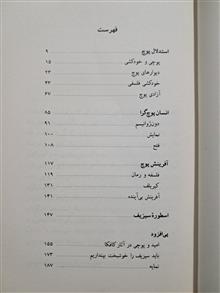 فهرست
استدلال پوچ ۹
پوچی و خودکشی ۱۵
دیوارهای پوچ ۲۳
خودکشی فلسفی ۴۳
آزادی پوچ ۶۷
انسان پوچ‌گرا ۸۵
دون‌ژوانیسم ۹۱
نمایش ۱۰۰
فتح ۱۰۸
آفرینش پوچ ۱۱۷
فلسفه و رمان ۱۱۹
کیریلف ۱۳۱
آفرینش بی‌آینده ۱۴۱
اسطورهٔ سیزیف ۱۴۷
پی‌افزود
امید و پوچی در آثار کافکا ۱۵۵
باید سیزیف را خوشبخت بپنداریم ۱۷۳
نمایه ۱۸۷